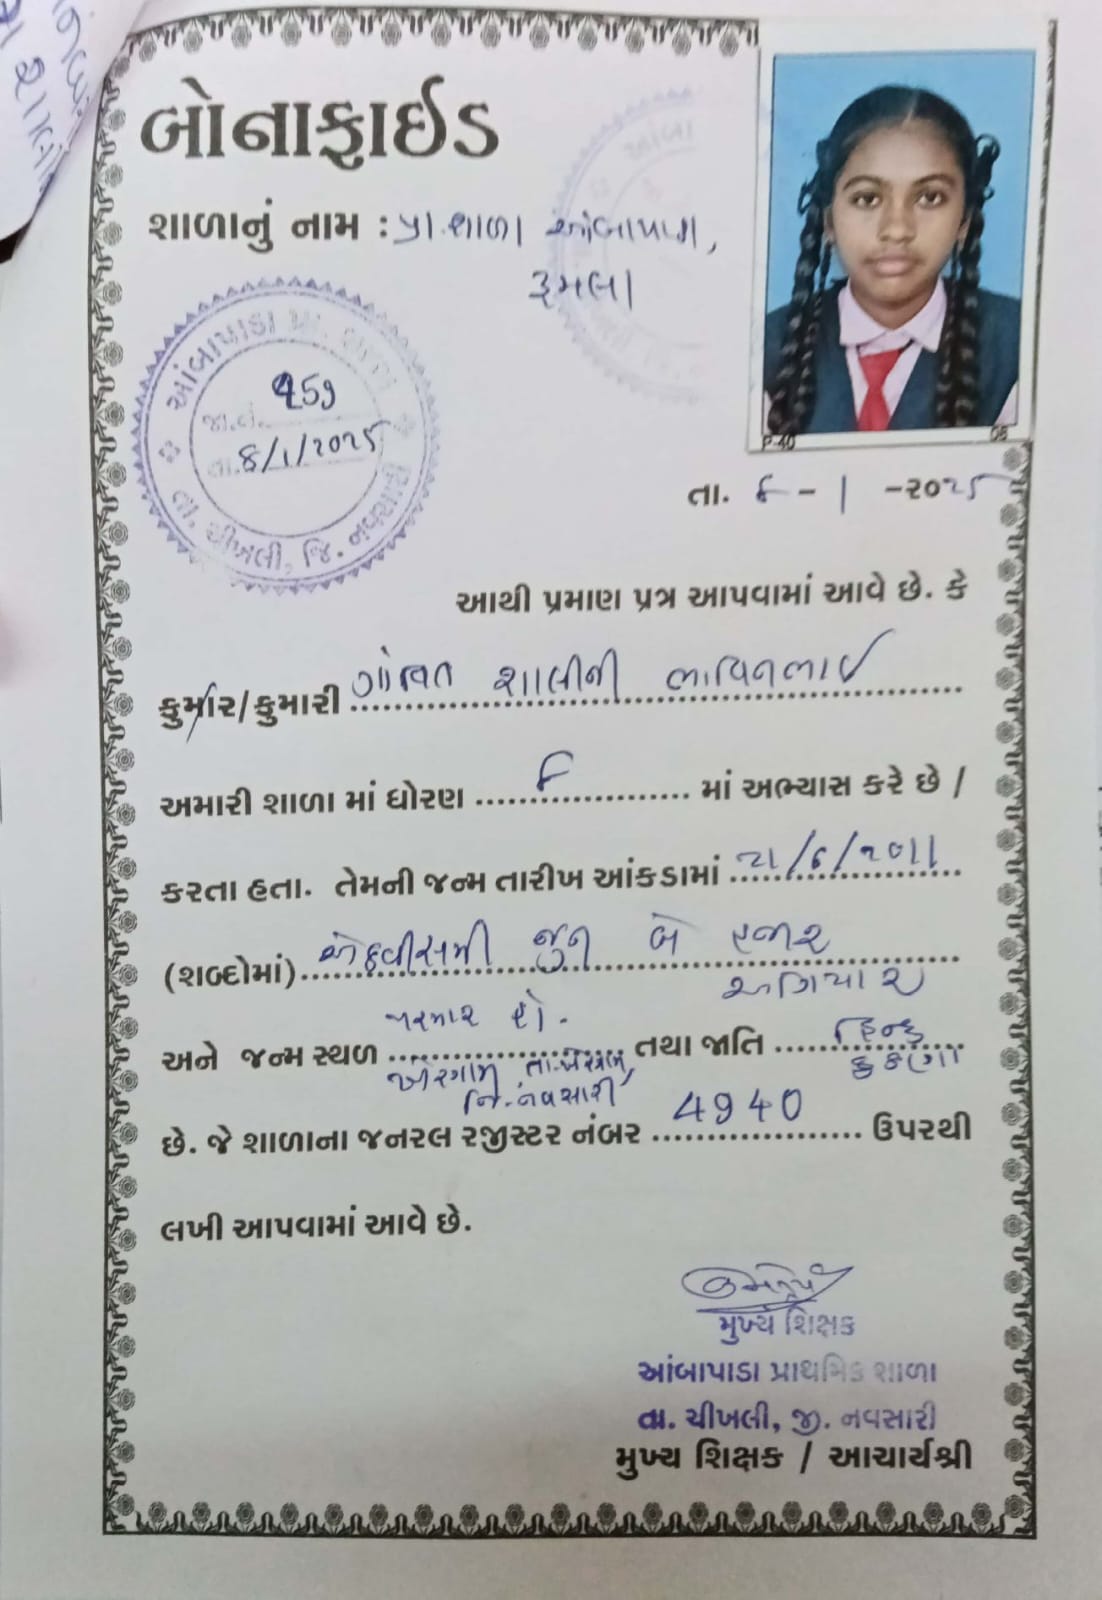 બોનાફાઈડ
શાળાનું નામ : પ્રા.શાળા આંબાપાડા,
રૂમલા
આંબાપાડા પ્રા. શાળા
જા.નં. 159
તા. 8/1/2025
તા. ચીખલી, જિ. નવસારી
P-40 05
તા. ૮ - ૧ -૨૦૨૫
આથી પ્રમાણ પત્ર આપવામાં આવે છે. કે
કુમાર/કુમારી ગાંવિત શાલીની ભાવિનભાઈ
અમારી શાળા માં ધોરણ ૮ માં અભ્યાસ કરે છે /
કરતા હતા. તેમની જન્મ તારીખ આંકડામાં ૨૧/૬/૨૦૧૧
(શબ્દોમાં) એકવીસમી જુન બે હજાર
અગિયાર
અને જન્મ સ્થળ પરમાર હો. તથા જાતિ હિન્દુ
કુકણા
ખેરગામ તા.ખેરગામ,
જિ.નવસારી
છે. જે શાળાના જનરલ રજીસ્ટર નંબર 4940 ઉપરથી
લખી આપવામાં આવે છે.
મુખ્ય શિક્ષક
આંબાપાડા પ્રાથમિક શાળા
તા. ચીખલી, જી. નવસારી
મુખ્ય શિક્ષક / આચાર્યશ્રી